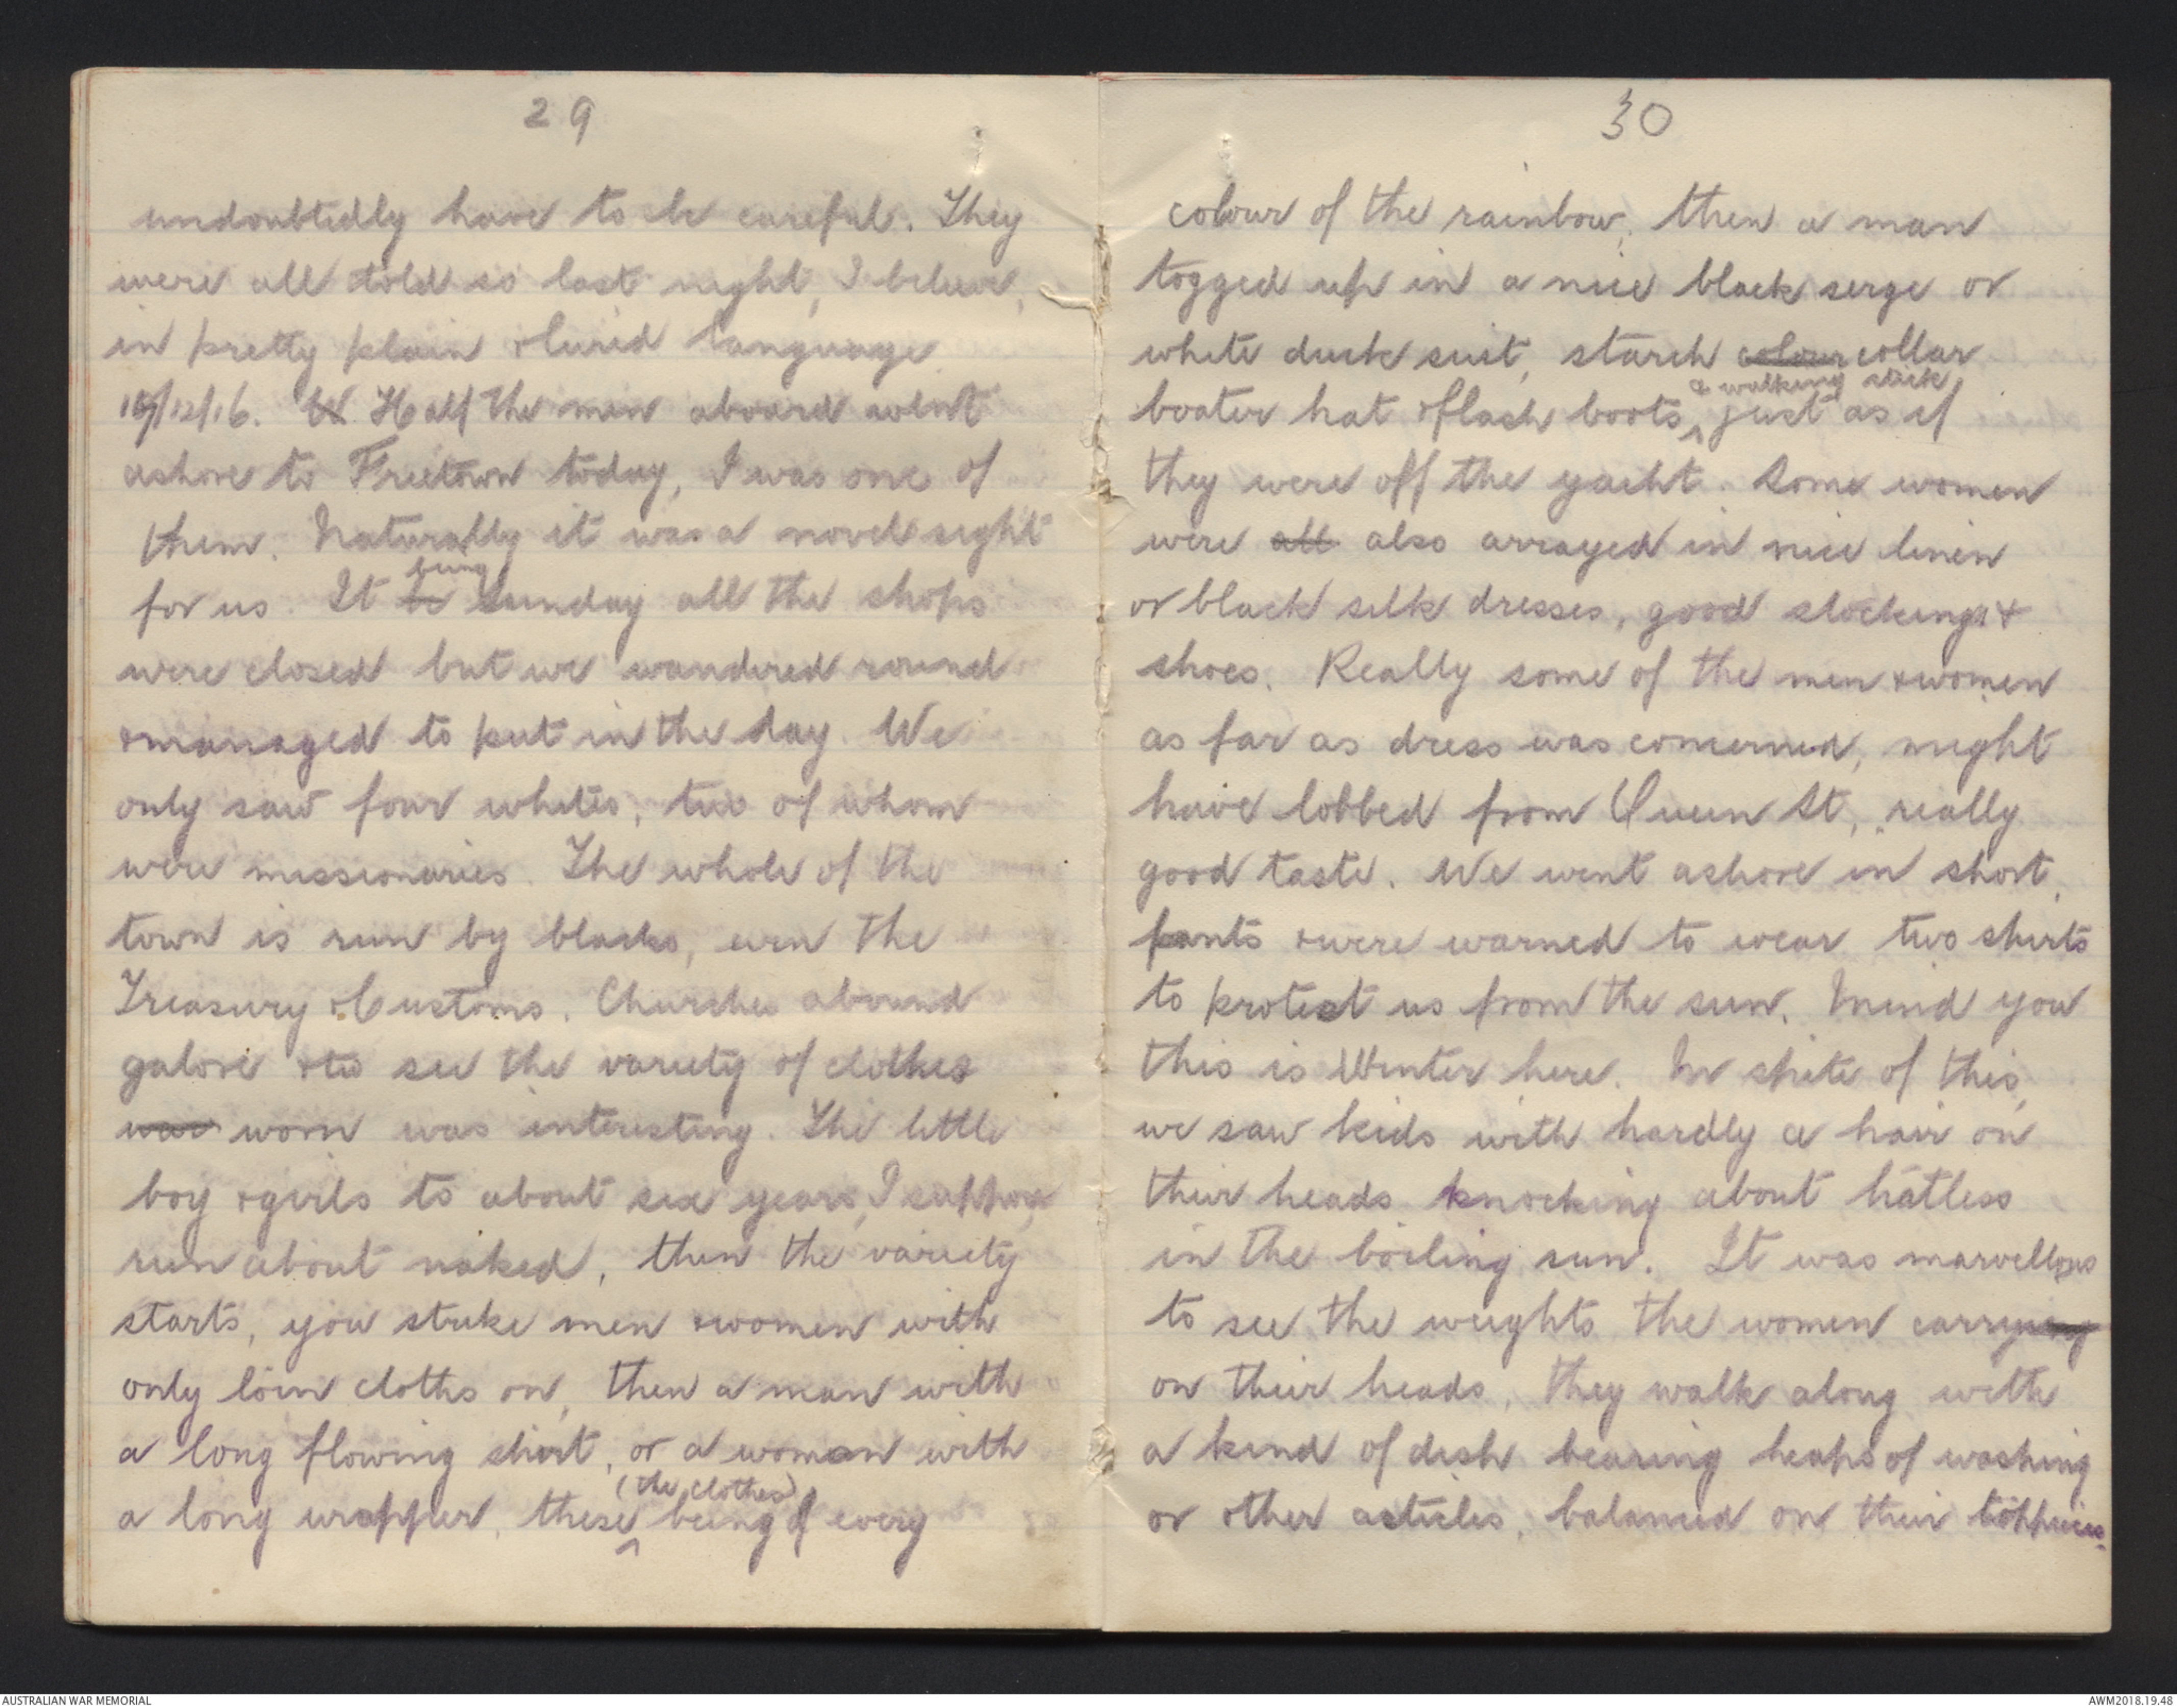 29
undoubtedly have to be careful. They
were all told so last night, I believe,
in pretty plain & lurid language.
10/12/16. W Half the men aboard went
ashore to Freetown today, I was one of
them. Naturally it was a novel sight
being
for us. It be Sunday all the shops
were closed but we wandered round
& managed to put in the day. We
only saw four whites, two of whom
were missionaries. The whole of the
town is run by blacks, even the
Treasury & Customs. Churches abound
galore & to see the variety of clothes
was worn was interesting. The little
boy & girls to about six years, I suppose,
run about naked, then the variety
starts, you strike men & women with
only loin cloths on, then a man with
a long flowing shirt, or a woman with
(the clothes)
a long wrapper, these being of every
30
colour of the rainbow, then a man
togged up in a nice black serge or
white duck suit, starch colour collar
& walking stick
boater hat & flash boots, just as if
they were off the yacht. Some women
were all also arrayed in nice linen
or black silk dresses, good stockings &
shoes. Really some of the men & women
as far as dress was concerned, might
have lobbed from Queen St, really
good taste. We went ashore in short
pants & were warned to wear two shirts
to protect us from the sun. Mind you
this is Winter here. In spite of this,
we saw kids with hardly a hair on
their heads knocking about hatless
in the boiling sun. It was marvellous
to see the weights the women carrying
on their heads, they walk along with
a kind of dish bearing heaps of washing
or other articles, balanced on their toppieces.
AUSTRALIAN WAR MEMORIAL
AWM2018.19.48